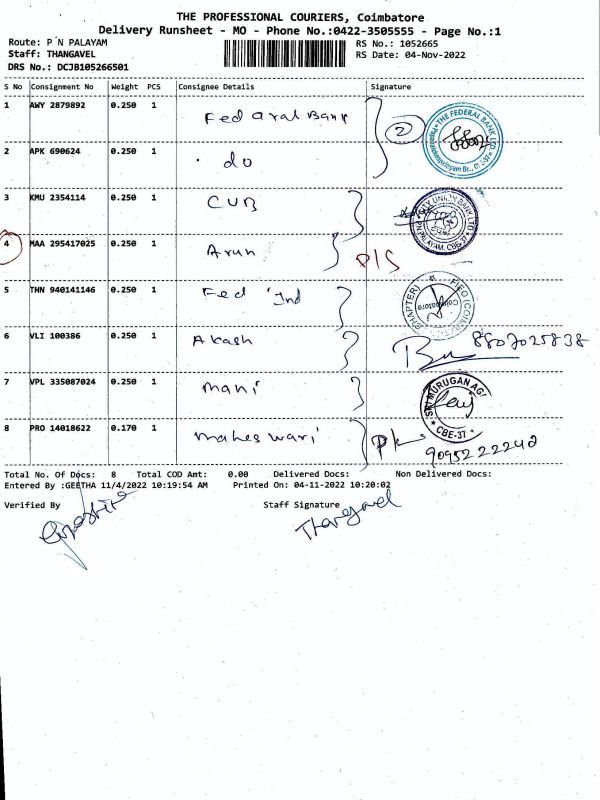 THE PROFESSIONAL COURIERS, Coimbatore
Delivery Runsheet - MO - Phone No.:0422-3505555 - Page No.:1
Route: P N PALAYAM
RS No.: 1052665
Staff: THANGAVEL
RS Date: 04-Nov-2022
DRS No.: DCJB105266501
S No Consignment No Weight PCS Consignee Details Signature
1 AWY 2879892 0.250 1 Fedaral Bank
2 THE FEDERAL BANK LTD
2 APK 690624 0.250 1 . do
3 KMU 2354114 0.250 1 CUB
CITY UNION BANK LTD
P.N.PALAYAM, CBE-37
4 MAA 295417025 0.250 1 Arun P/S
5 THN 940141146 0.250 1 Fed Ind
Coimbatore
CHAPTER)
6 VLI 100386 0.250 1 Akash 8807025838
7 VPL 335087024 0.250 1 mani
SRI MURUGAN AG
CBE-37
8 PRO 14018622 0.170 1 maheswari
9095222242
Total No. Of Docs: 8 Total COD Amt: 0.00 Delivered Docs: Non Delivered Docs:
Entered By :GEETHA 11/4/2022 10:19:54 AM Printed On: 04-11-2022 10:20:02
Verified By Staff Signature
Thangavel